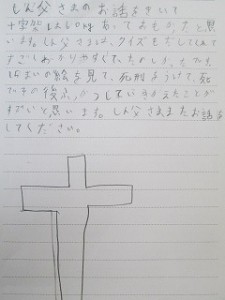 しん父さまのお話をきいて
十字架は50kgあっておもかったと思
います。しん父さまは、クイズもだしてくれて
すごくわかりやすくてたのしかったです。
さいごの絵を見て、死刑をうけて、死
の後ふっかつしていきかえたことが
すごいと思います。しん父さままたお話を
してください。